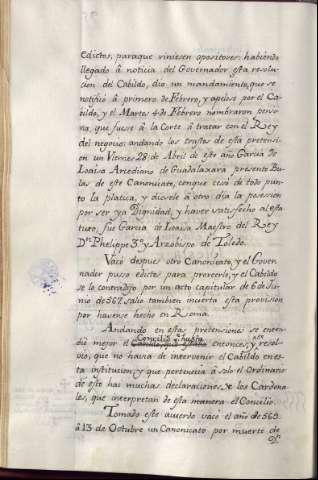 edictos, paraque viniesen opositores: habiendo
llegado â noticia del Governador esta resolu-
cion del Cabildo, dio un mandamiento, que se
notificó â primero de Febrero, y apelose por el Ca-
bildo, y el Martes 4 de Febrero nombraron perso-
na, que fuese â la Corte â tratar con el Rey
del negocio: andando las cosas de esta pretensi-
on un Viernes 28 de Abril de este año Garcia de
Loaisa Arcediano de Guadalaxara presentó Bu-
las de este Canonicato, conque cesó de todo pun-
to la platica, y diosele â otro dia la posesion
por ser ya Dignidad, y haver satisfecho al esta-
tuto, fue Garcia de Loaisa Maestro del Rey
Dn. Phelippe 3º y Arzobispo de Toledo.
Vacó despues otro Canonicato, y el Gover-
nador puso edictos para proveerlo, y el Cabildo
se lo contradijo por un acto capitular de 6 de Ju-
nio de 567. salio tambien incierta esta provision
por haverse hecho en Roma.
Andando en estas pretensiones se enten-
dio mejor el Concilio y hasta entonces, y se resol-
vio, que no havia de intervenir el Cabildo en es-
ta institucion, y que pertenecia â solo el Ordinario
de esto hai muchas declaraciones de los Cardena-
les, que interpretan de esta manera el Concilio.
Tomado este acuerdo vacó el año de 569
â 13 de Octubre un Canonicato por muerte de